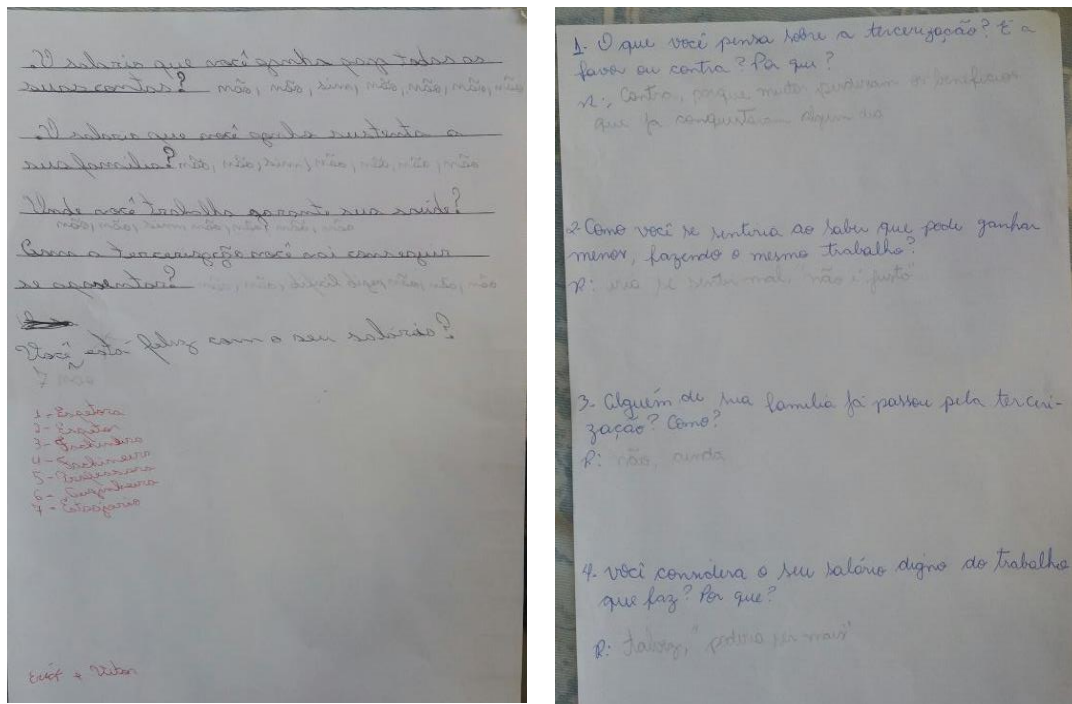 O salario que você ganha paga todas as
suas contas? não, não, sim, não, não, não, não
O salario que você ganha sustenta a
sua familia? não, não, não, não, não
Onde você trabalha garante sua saúde?
não, não, não, não, não
Com a terceirização você vai conseguir
se aposentar? não, não, não
Você está feliz com o seu salário?
7 não
1 -
2 -
3 - Fachineira
4 - Fachineira
5 - Professora
6 - Cuzinheira
7 - Estagiario
+ Vitor
1- O que você pensa sobre a tercerização? É a
favor ou contra? Por que?
R:, Contra, porque muitos perderam os beneficios
que já conquistaram algum dia
2- Como você se sentiria ao saber que pode ganhar
menos, fazendo o mesmo trabalho?
R: iria se sentir mal "não é justo"
3- Alguém de sua família já passou pela terceri-
zação? Como?
R: não, ainda
4- Você considera o seu salário digno do trabalho
que faz? Por que?
R: talvez, "poderia ser mais"